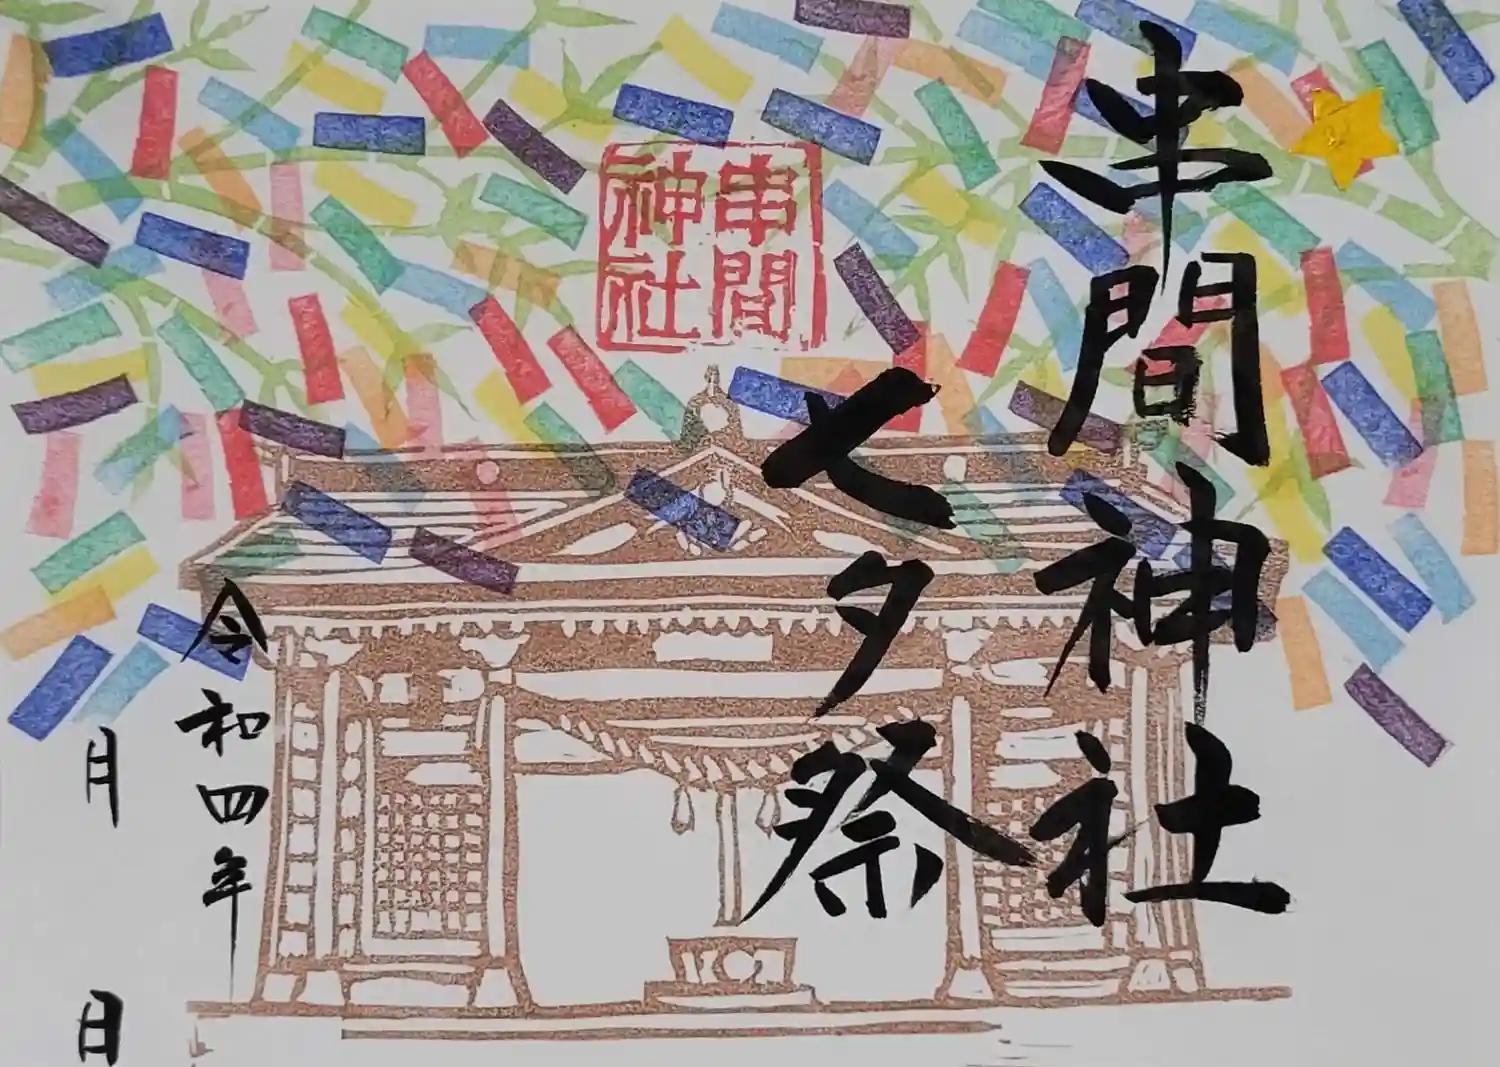 串間神社
七夕祭
串間
神社
令和四年
月
日